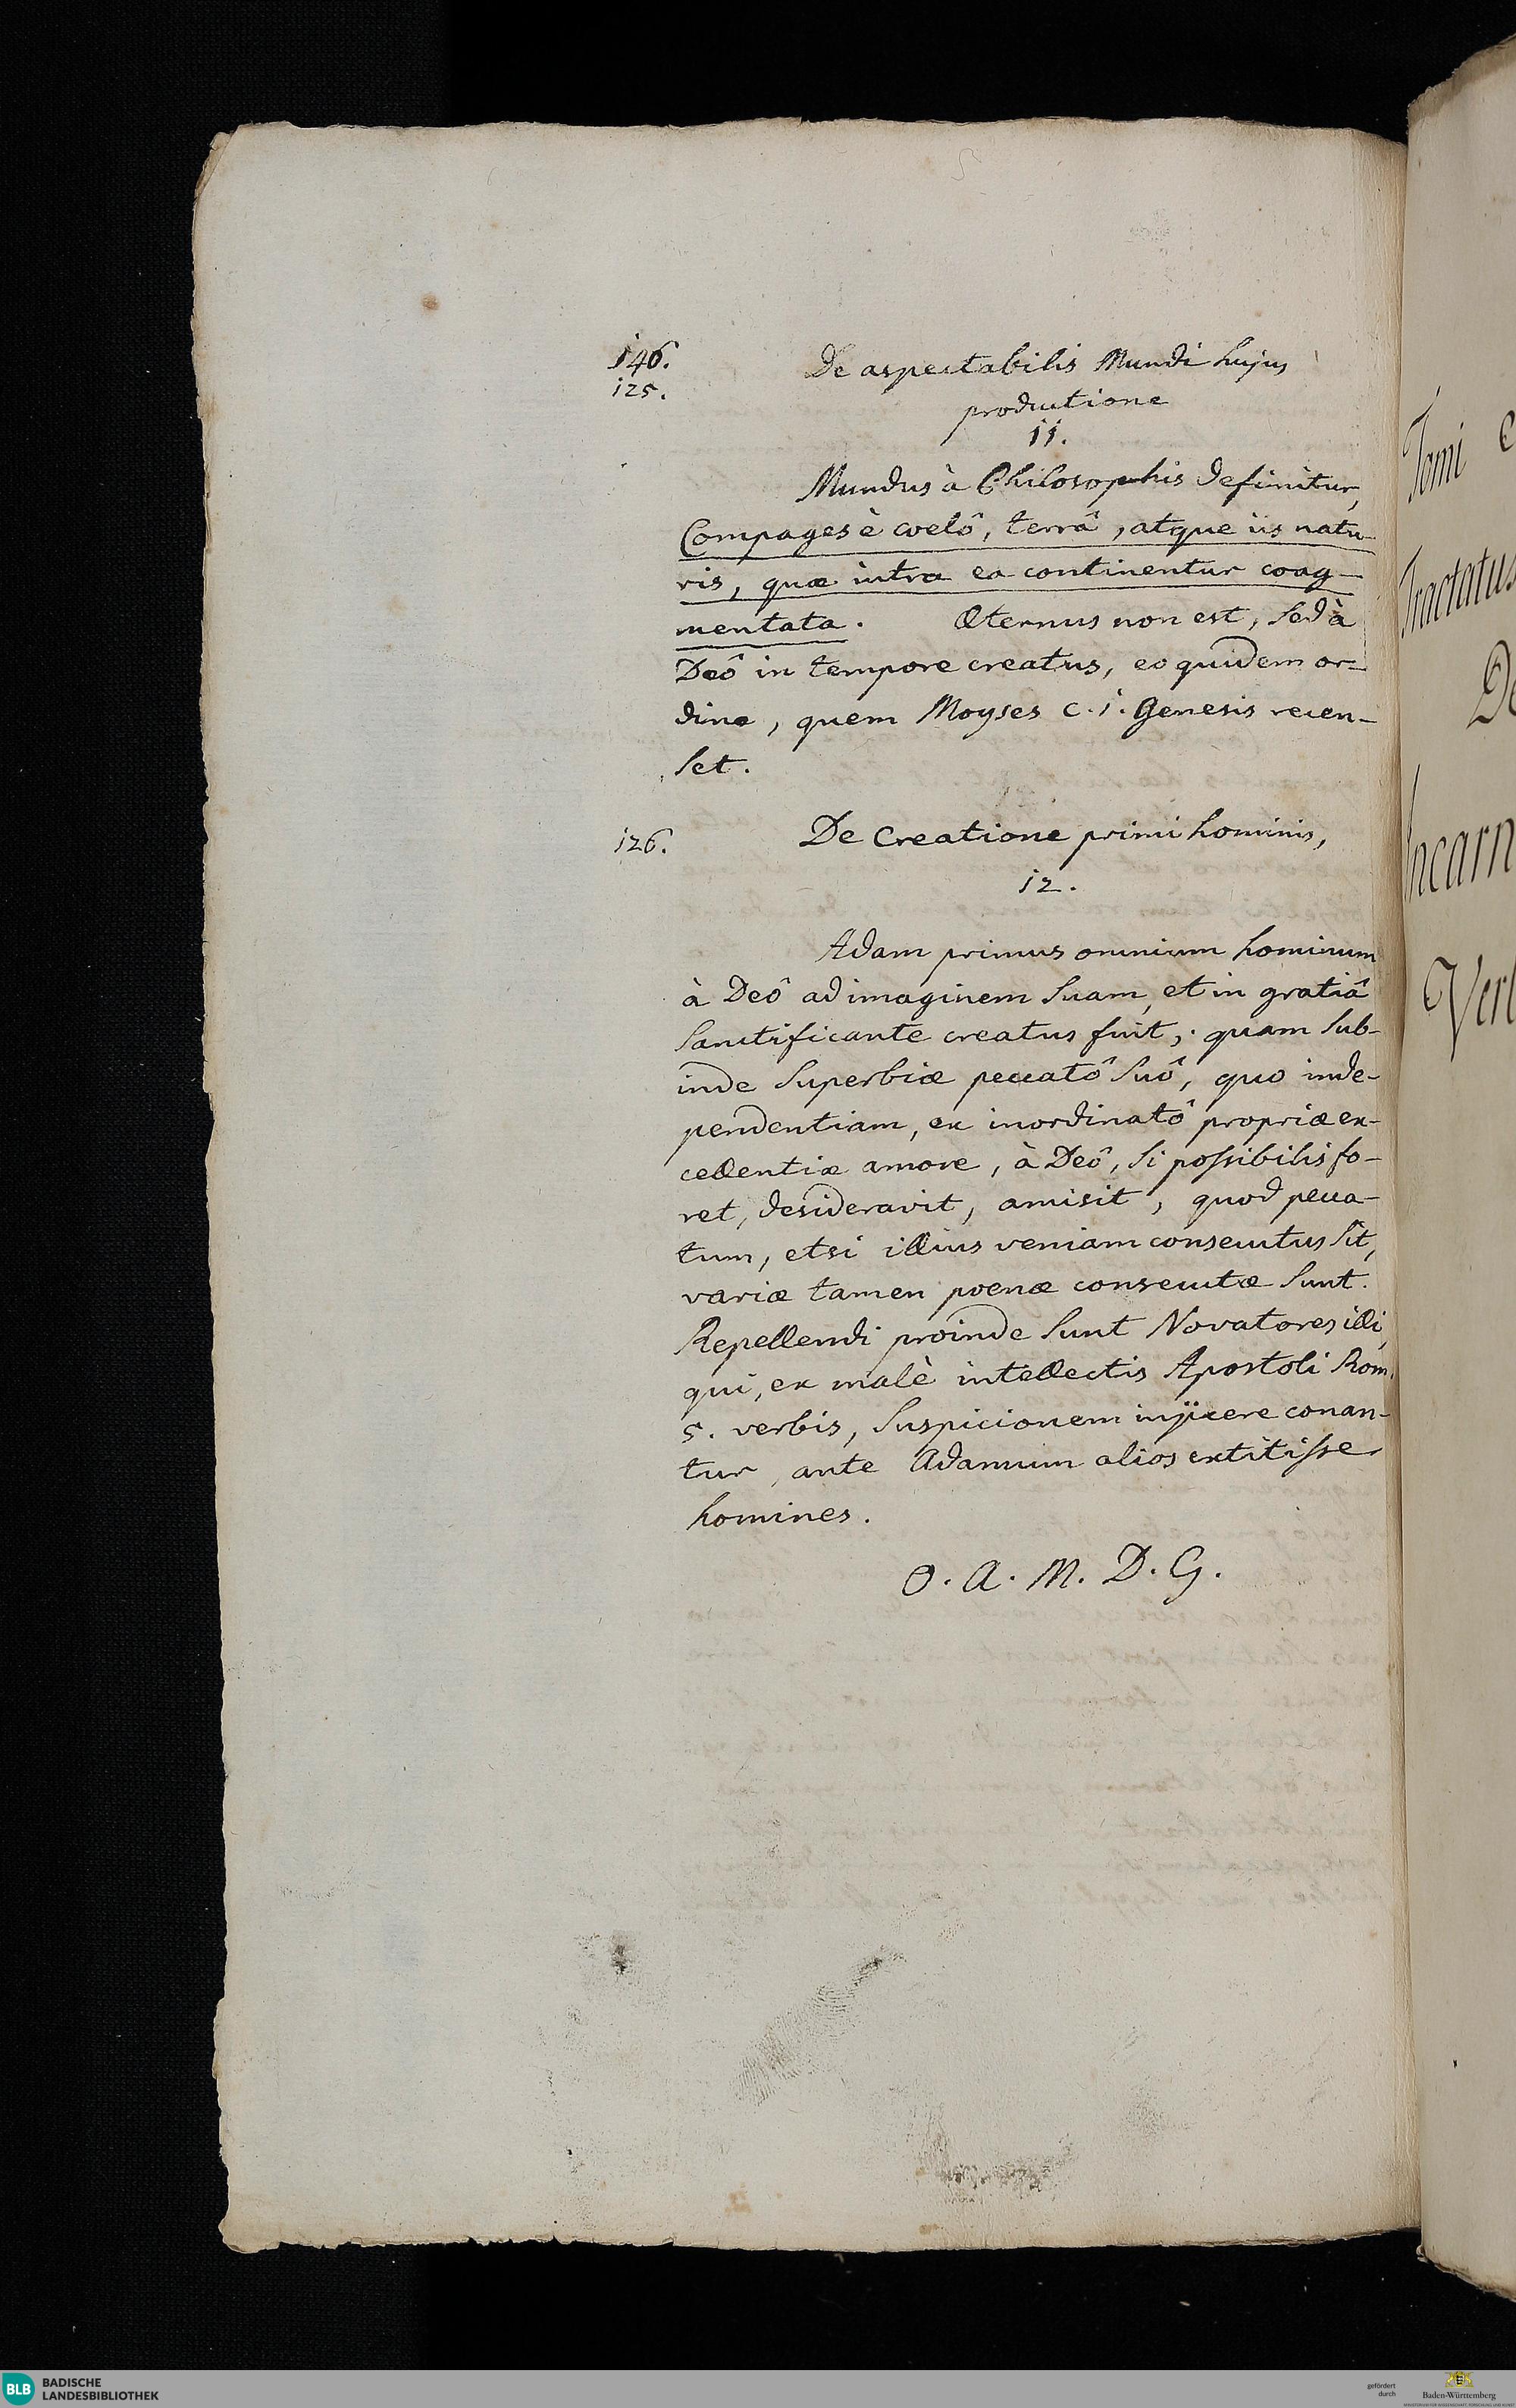 146.
125.
De aspectabilis Mundi hujus
productione
11.
Mundus à Philosophis definitur,
Compages è coelô, terrâ, atque iis natu-
ris, quæ intra ea continentur coag-
mentata. Æternus non est, sed à
Deô in tempore creatus, eo quidem or-
dine, quem Moyses c. 1. Genesis recen-
set.
126.
De Creatione primi hominis,
12.
Adam primus omnium hominum
à Deô ad imaginem suam, et in gratiâ
sanctificante creatus fuit, quam sub-
inde superbiæ peccatô suô, quo inde-
pendentiam, ex inordinatô propriæ ex-
cellentiæ amore, à Deô, si possibilis fo-
ret, desideravit, amisit, quod pecca-
tum, etsi illius veniam consecutus sit,
variæ tamen poenæ consecutæ sunt.
Repellendi proinde sunt Novatores illi,
qui, ex malè intellectis Apostoli Rom.
5. verbis, suspicionem injicere conan-
tur, ante Adamum alios extitisse
homines.
O. A. M. D. G.
Tomi
Tractatus
De
Incarn
Verb
BLB BADISCHE
LANDESBIBLIOTHEK
gefördert
durch
Baden-Württemberg